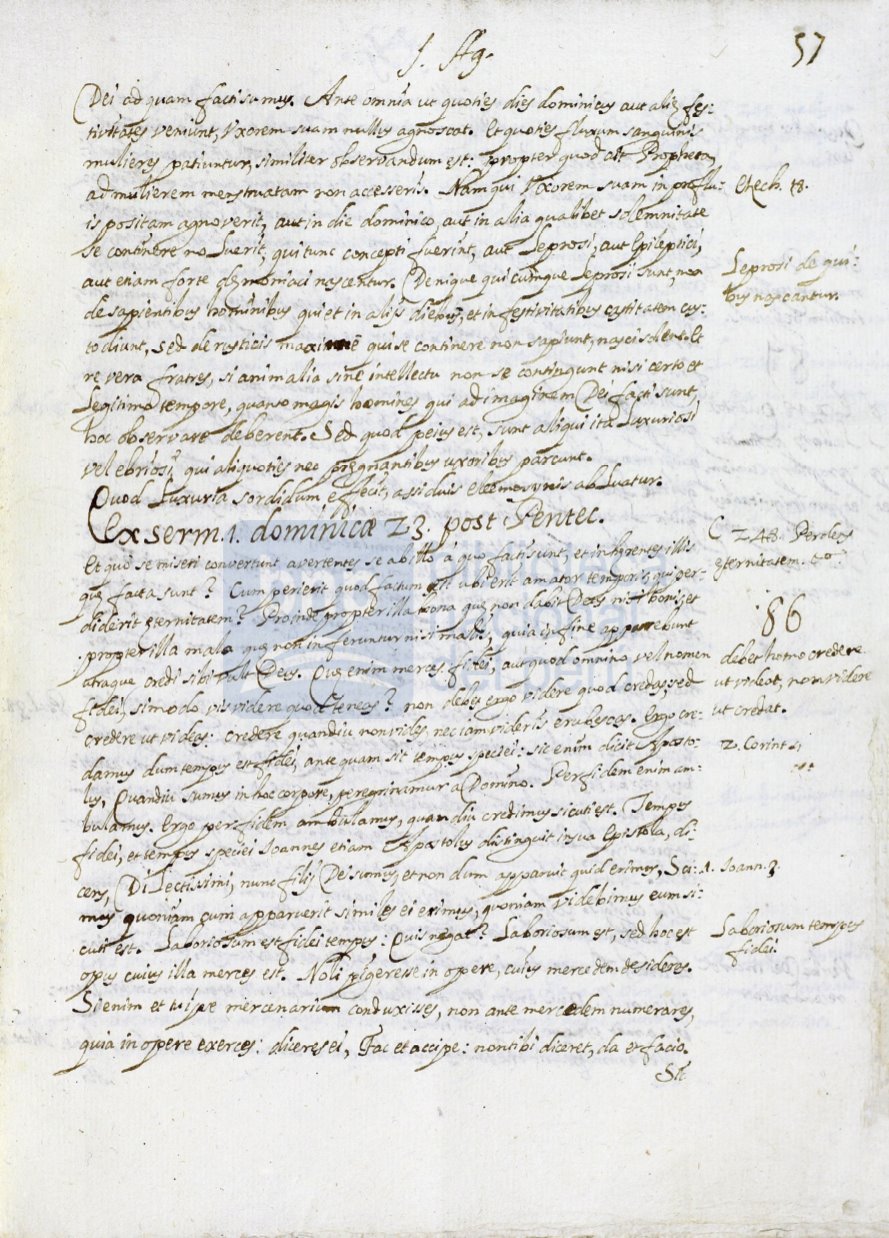 S. Ag.
57
Dei ad quam facti sumus. Ante omnia ut quoties dies dominicus aut alię fes-
tivitates veniunt, Uxorem suam nullus agnoscat. Et quoties fluxum sanguinis
mulieres patiuntur, similiter observandum est: propter quod ait Propheta,
ad mulierem menstruatam non accesseris. Nam qui Uxorem suam in proflu-
Ezech. 18.
is positam agnoverit, aut in die dominico, aut in alia qualibet solemnitate
se continere noluerit, qui tunc concepti fuerint, aut Leprosi, aut Epileptici,
aut etiam forte dęmoniaci nascentur. Denique qui cumque Leprosi sunt, non
Leprosi de qui-
bus nascantur.
de sapientibus hominibus qui et in alijs diebus, et in festivitatibus castitatem cus-
todiunt, sed de rusticis maxime qui se continere non sapiunt, nasci solent. Et
re vera fratres, si animalia sine intellectu non se contingunt nisi certo et
Legitimo tempore, quanto magis homines qui ad imaginem Dei facti sunt,
hoc observare deberent. Sed quod peius est, sunt aliqui ita Luxuriosi
vel ebriosi, qui aliquoties nec pręgnantibus uxoribus parcunt.
Quod Luxuria sordidum effecit, assiduis eleemosynis abLuatur.
Ex serm. 1. dominicæ 23. post Pentec.
Et quo se miseri convertunt avertentes se ab illo á quo facti sunt, et inhęrentes illis
C 248. Perdens
ęternitatem.
quę facta sunt? Cum perierit quod factum est ubi erit amator temporis, qui per-
diderit ęternitatem? Proinde propter illa bona quę non dabit Deus nisi bonis, et
86
propter illa mala quę non inferuntur nisi malis, quia in fine apparebunt
utraque credi sibi vult Deus. Quę enim merces fidei, aut quod omnino vel nomen
debet homo credere
ut videat, non videre
ut credat.
fidei, si modo vis videre quod teneas? non debes ergo videre quod credas, sed
credere ut videas: credere quandiu non vides, nec iam videris erubescas. Ergo cre-
damus dum tempus est fidei, ante quam sit tempus speciei: sic enim dicit Aposto-
2. Corint.
lus, Quandiu sumus in hoc corpore, peregrinamur a Domino. Per fidem enim am-
bulamus. Ergo per fidem ambulamus, quandiu credimus sicuti est. Tempus
fidei, et tempus speciei Ioannes etiam Apostolus distinguit in sua Epistola, di-
cens, DiLectissimi, nunc filij Dei sumus, et non dum apparuit quid erimus, Sci-
1. Ioann. 3.
mus quoniam cum apparuerit similes ei erimus, quoniam videbimus eum si-
cuti est. Laboriosum est fidei tempus: Quis negat? Laboriosum est, sed hoc est
Laboriosum tempus
fidei.
opus cuius illa merces est. Noli pigeresse in opere, cuius mercedem desideres.
Si enim et tu ipse mercenarium conduxisses, non ante mercedem numerares,
quia in opere exerces: diceres ei, Fac et accipe: non tibi diceret, da et facio.
Sic